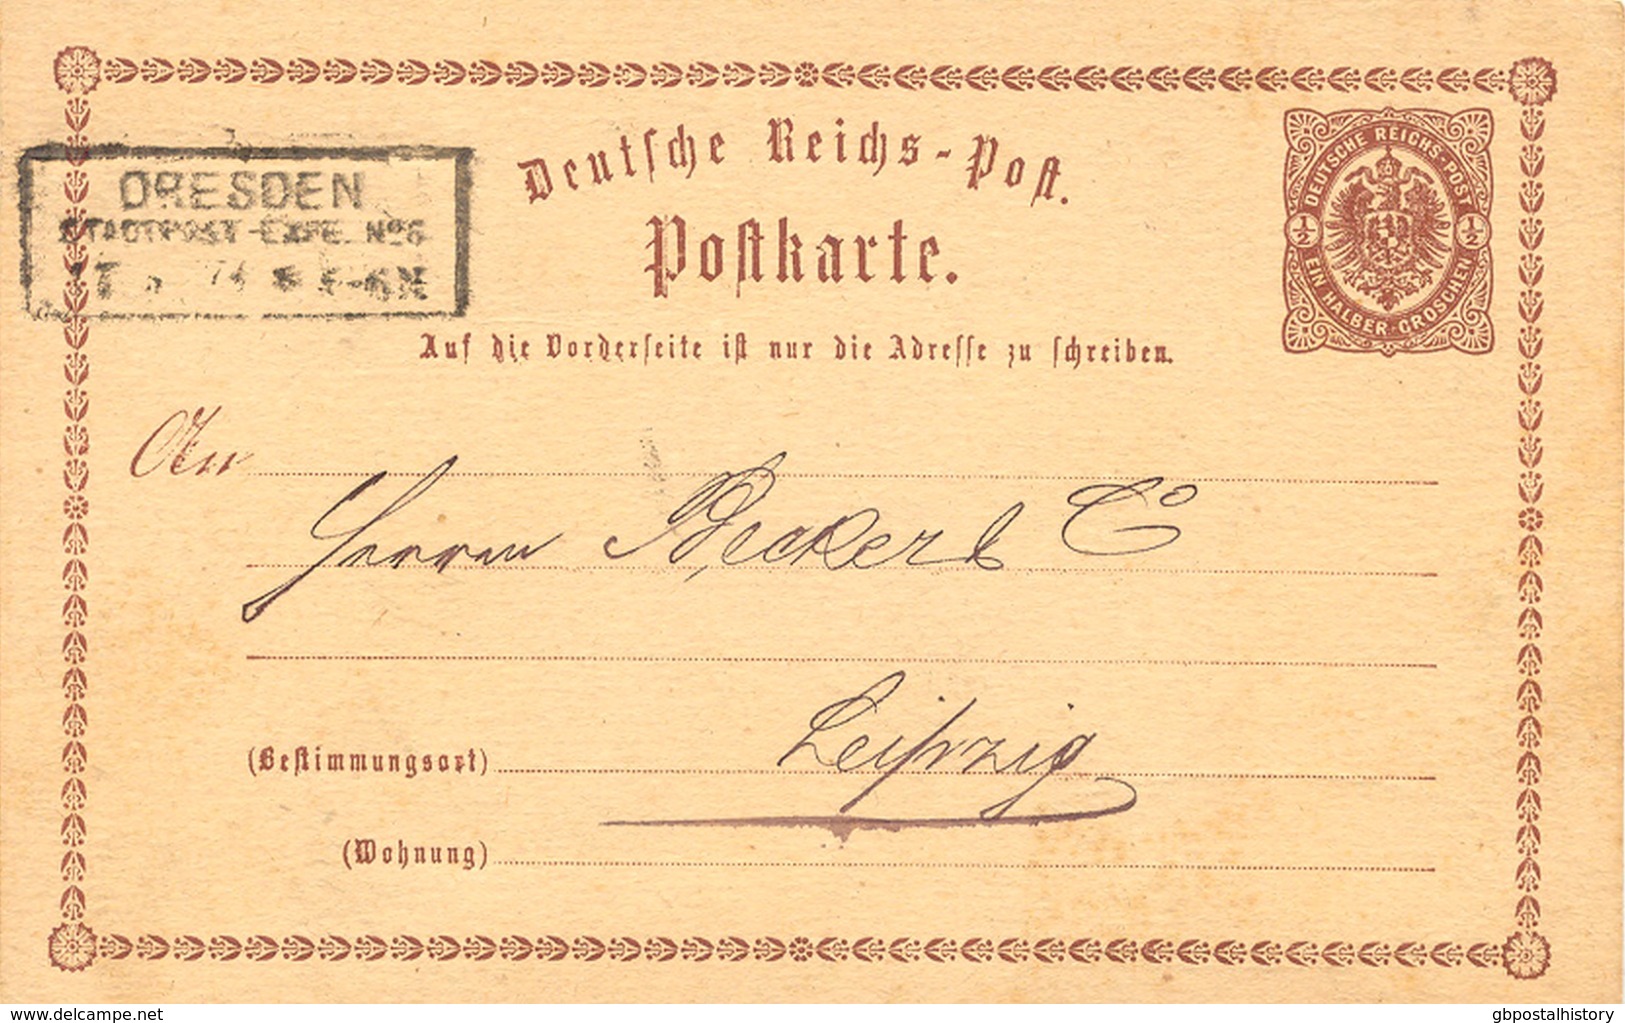 DRESDEN
STADTPOST-EXPE. No 6
Deutsche Reichs-Post.
Postkarte.
DEUTSCHE REICHS-POST
½ ½
EIN HALBER GROSCHEN
Auf die Vorderseite ist nur die Adresse zu schreiben.
An
Herren Becker & Co
(Bestimmungsort) Leipzig
(Wohnung)
www.delcampe.net
gbpostalhistory